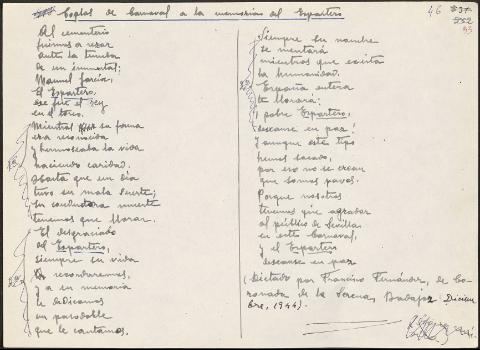 Coplas de Carnaval a la memoria del Espartero
46
552
93
Al cementerio
fuimos a rezar
ante la tumba
de un inmortal;
Manuel García,
El Espartero,
ese fué el rey
en el toreo.
Mientras su fama
era reconocida
y hermoseaba la vida
haciendo caridad.
Hasta que un día
tuvo su mala suerte;
su conducta muerte
tenemos que llorar.
El desgraciado
del Espartero,
siempre su vida
le recordaremos,
y a su memoria
le dedicamos
un pasodoble
que le cantamos.
Siempre su nombre
se mentará
mientras que exista
la humanidad.
España entera
te llorará;
¡pobre Espartero,
descanse en paz!
Y aunque este tipo
hemos sacado,
por eso no se crean
que somos pavos.
Porque nosotros
tenemos que agradar
al público de Sevilla
en este Carnaval,
y el Espartero
descanse en paz
(Dictado por Francisco Fernández, de Co-
ronada de la Serena, Badajoz. Diciem-
bre, 1944).